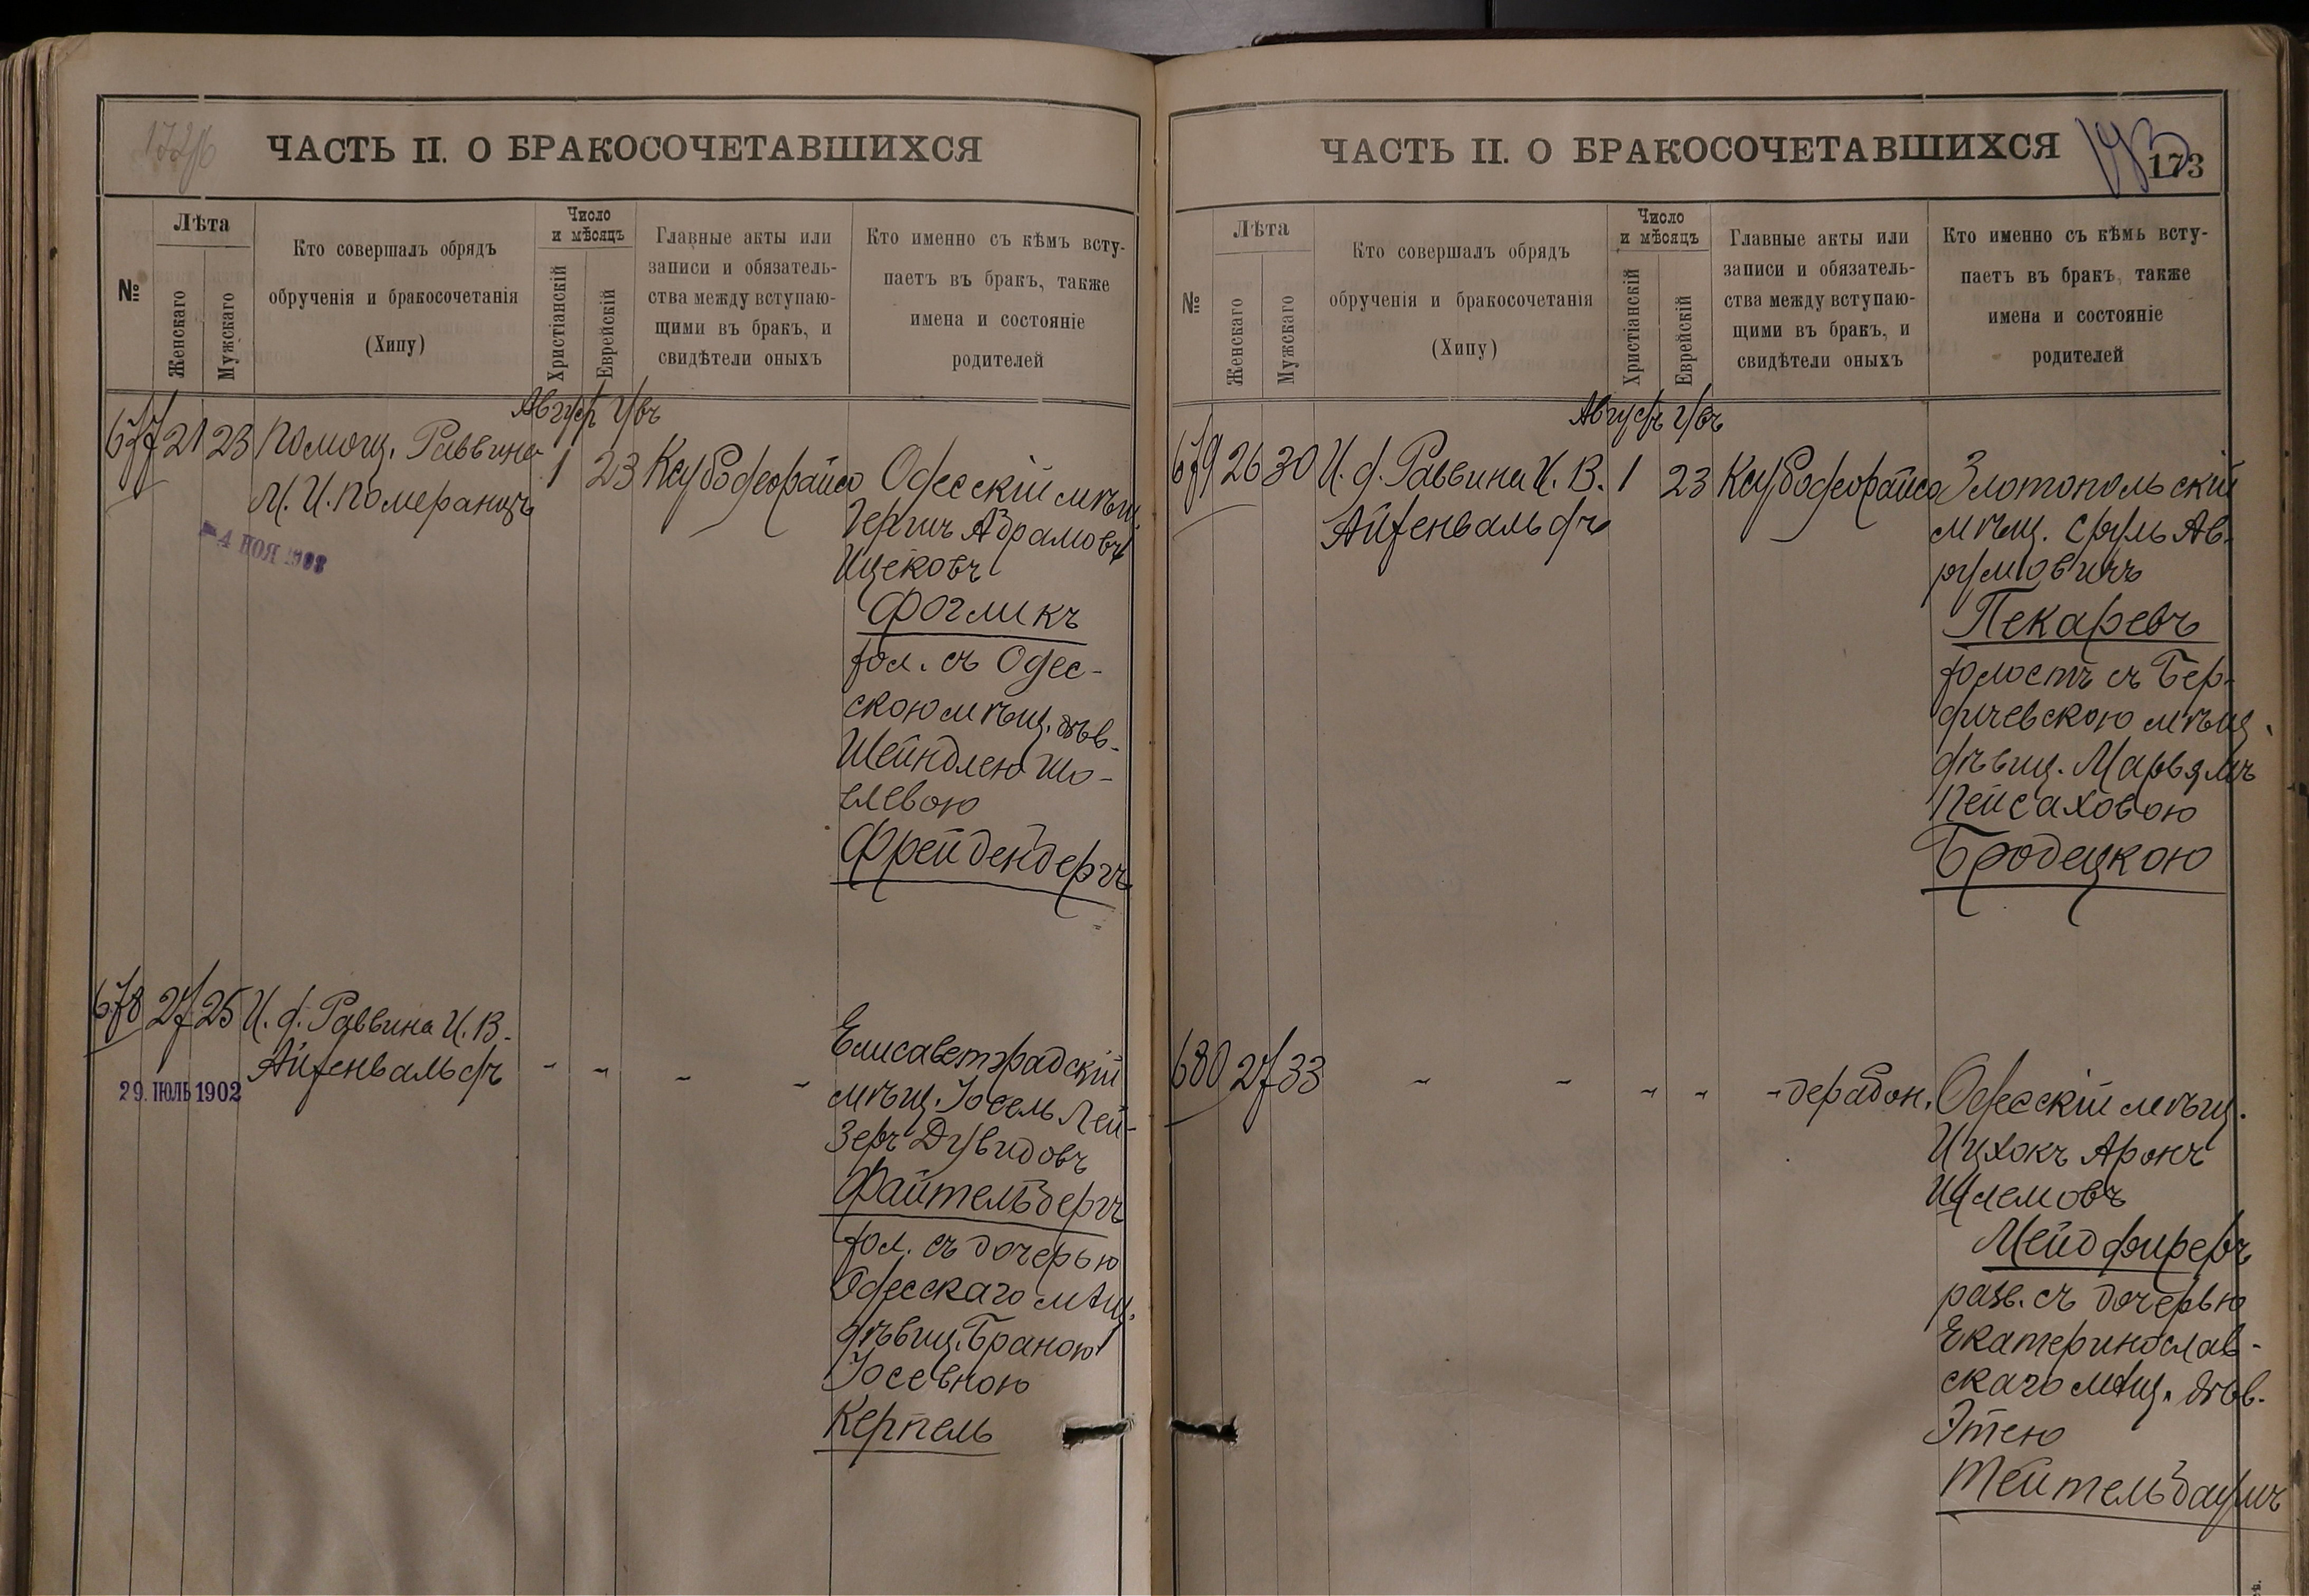 ЧАСТЬ II. О БРАКОСОЧЕТАВШИХСЯ
№
Лѣта
Женскаго
Мужскаго
Кто совершалъ обрядъ
обрученія и бракосочетанія
(Хипу)
Число
и мѣсяцъ
Христіанскій
Еврейскій
Главные акты или
записи и обязатель-
ства между вступаю-
щими въ бракъ, и
свидѣтели оныхъ
Кто именно съ кѣмъ всту-
паетъ въ бракъ, также
имена и состояніе
родителей
677 21 23
Помощ. Раввина
М. И. Померанцъ
4 НОЯ
1 23
Одесскій мѣщ.
Абрамовъ
Ицековъ
Фогликъ
хол. съ Одес-
скою мѣщ. дѣв.
Шейндлею Шо-
елевою
Фрейденбергъ
678 27 25
И. д. Раввина И. В.
Айзенвальдъ
29. ІЮЛЬ 1902
Елисаветградскій
мѣщ. Іосель Лей-
зеръ Дувидовъ
Файтельбергъ
хол. съ дочерью
Одесскаго мѣщ.
дѣвиц. Браною
Іосевною
Керпель
ЧАСТЬ II. О БРАКОСОЧЕТАВШИХСЯ
173
№
Лѣта
Женскаго
Мужскаго
Кто совершалъ обрядъ
обрученія и бракосочетанія
(Хипу)
Число
и мѣсяцъ
Христіанскій
Еврейскій
Главные акты или
записи и обязатель-
ства между вступаю-
щими въ бракъ, и
свидѣтели оныхъ
Кто именно съ кѣмъ всту-
паетъ въ бракъ, также
имена и состояніе
родителей
679 26 30
И. д. Раввина И. В.
Айзенвальдъ
1 23
Златопольскій
мѣщ. Сруль Ав-
румовичъ
Пекаревъ
холостъ съ Бер-
дичевскою мѣщ.
дѣвиц. Марьямъ
Пейсаховою
Бродецкою
680 27 33
Одесскій мѣщ.
Ицхокъ Аронъ
Шлемовъ
Мейдфиреръ
разв. съ дочерью
Екатеринослав-
скаго мѣщ. дѣв.
Этею
Тейтельбаумъ